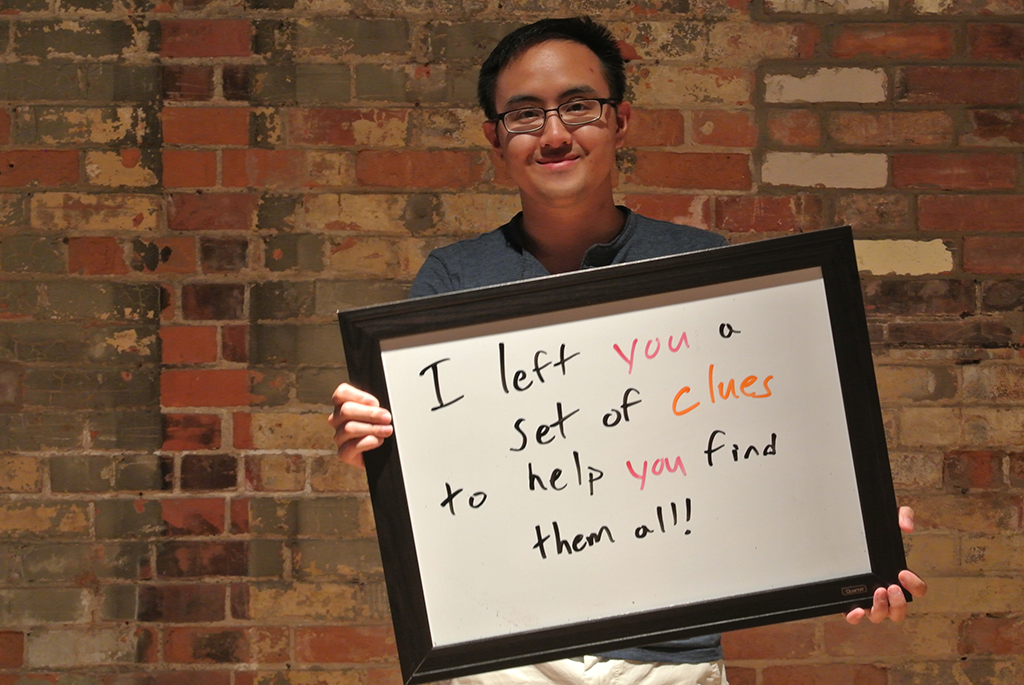 I left you a
set of clues
to help you find
them all!
Quartet